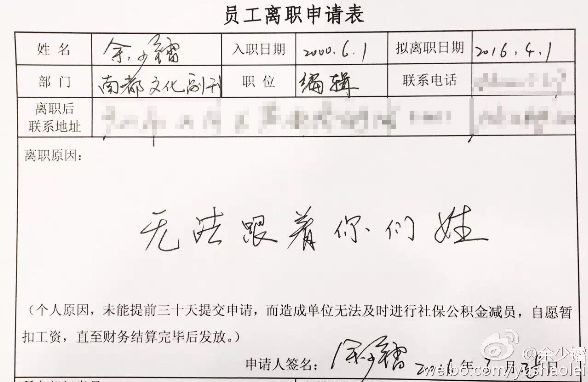 员工离职申请表
姓名 余少镭 入职日期 2000.6.1 拟离职日期 2016.4.1
部门 南都文化副刊 职位 编辑 联系电话
离职后
联系地址
离职原因：
无法跟着你们姓
（个人原因，未能提前三十天提交申请，而造成单位无法及时进行社保公积金减员，自愿暂
扣工资，直至财务结算完毕后发放。）
申请人签名： 余少镭 2016年3月28日